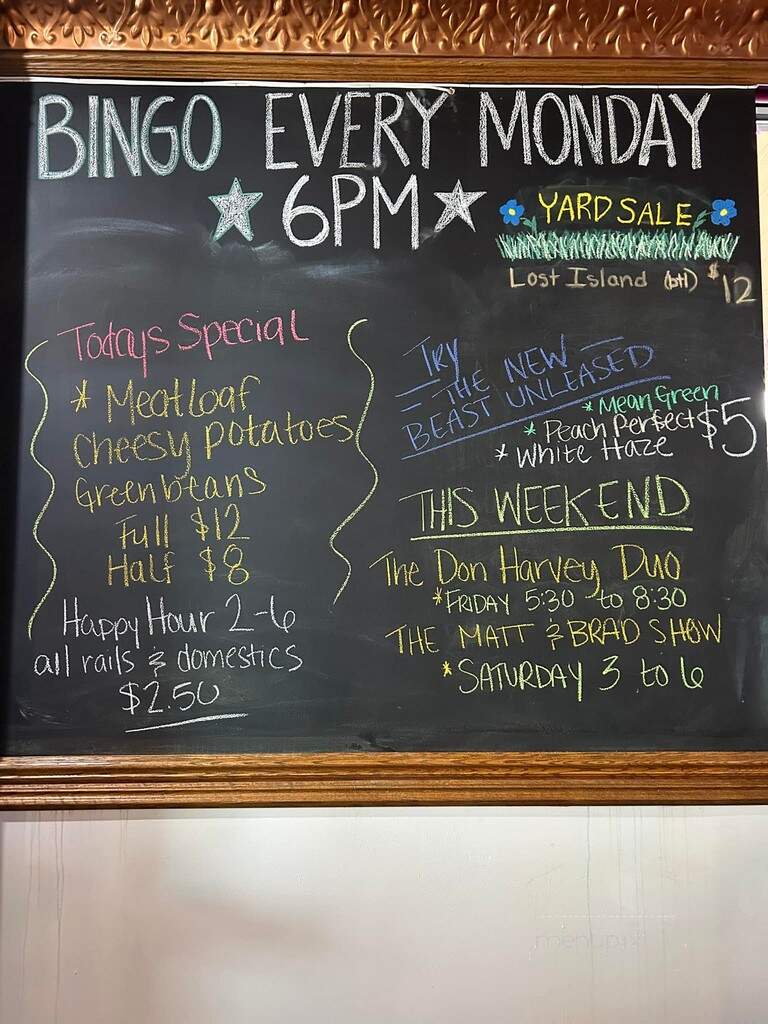 BINGO EVERY MONDAY
★ 6PM ★
YARD SALE
Lost Island (btl) $12
Todays Special
* Meatloaf
Cheesy potatoes
Green beans
Full $12
Half $8
Happy Hour 2-6
all rails & domestics
$2.50
TRY
- THE NEW -
- BEAST UNLEASED
* Mean Green
* Peach Perfect $5
* White Haze
THIS WEEKEND
The Don Harvey Duo
*FRIDAY 5:30 to 8:30
THE MATT & BRAD SHOW
*SATURDAY 3 to 6
menupix